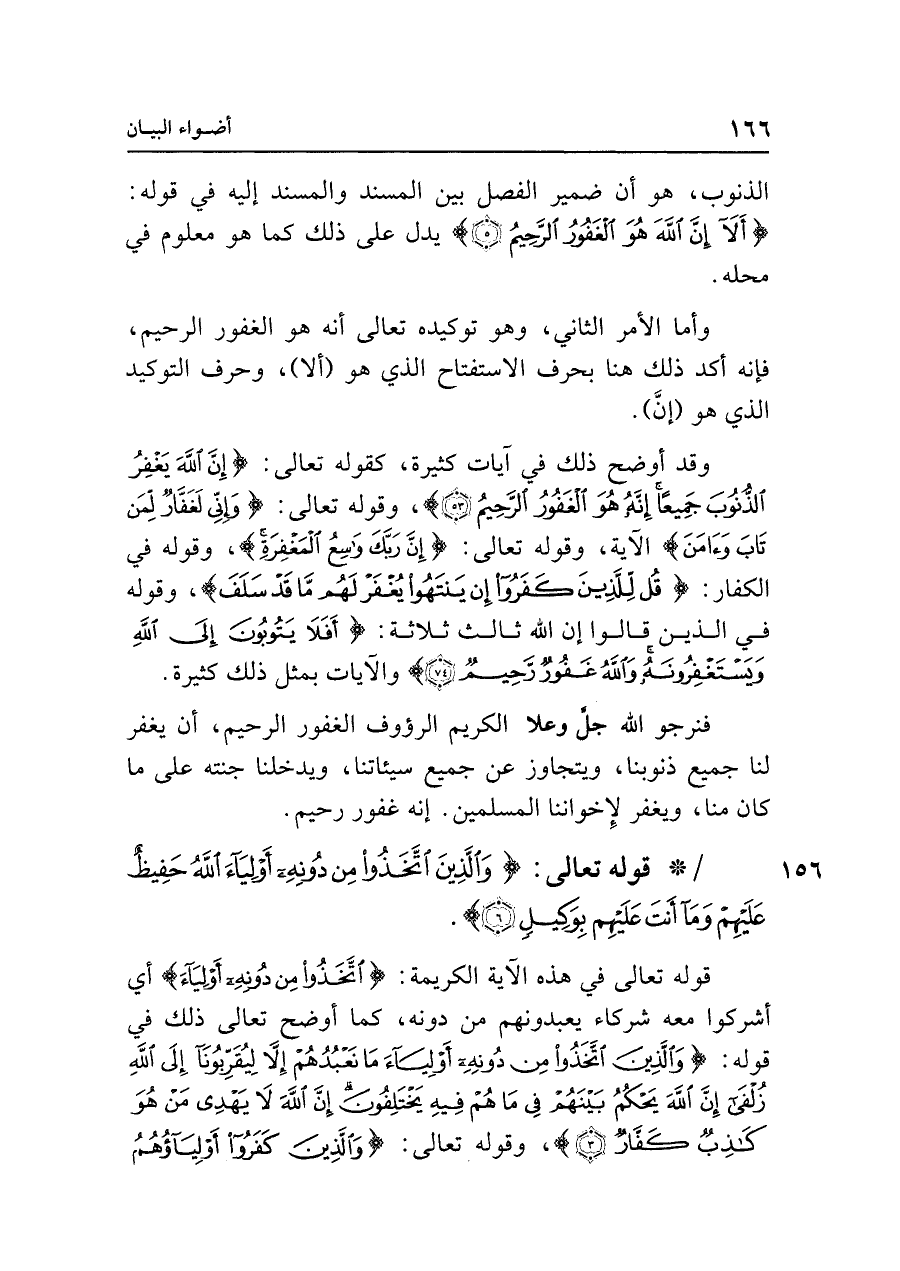 ١٦٦ أضـواء البيـان
الذنوب، هو أن ضمير الفصل بين المسند والمسند إليه في قوله:
﴿أَلَآ إِنَّ ٱللَّهَ هُوَ ٱلْغَفُورُ ٱلرَّحِيمُ ۝٥﴾ يدل على ذلك كما هو معلوم في
محله.
وأما الأمر الثاني، وهو توكيده تعالى أنه هو الغفور الرحيم،
فإنه أكد ذلك هنا بحرف الاستفتاح الذي هو (ألا)، وحرف التوكيد
الذي هو (إنَّ).
وقد أوضح ذلك في آيات كثيرة، كقوله تعالى: ﴿إِنَّ ٱللَّهَ يَغْفِرُ
ٱلذُّنُوبَ جَمِيعًاۚ إِنَّهُۥ هُوَ ٱلْغَفُورُ ٱلرَّحِيمُ ۝٥٣﴾، وقوله تعالى: ﴿وَإِنِّي لَغَفَّارٌ لِّمَن
تَابَ وَءَامَنَ﴾ الآية، وقوله تعالى: ﴿إِنَّ رَبَّكَ وَٰسِعُ ٱلْمَغْفِرَةِۚ﴾، وقوله في
الكفار: ﴿قُل لِّلَّذِينَ كَفَرُوٓا۟ إِن يَنتَهُوا۟ يُغْفَرْ لَهُم مَّا قَدْ سَلَفَ﴾، وقوله
في الذين قالوا إن الله ثالث ثلاثة: ﴿أَفَلَا يَتُوبُونَ إِلَى ٱللَّهِ
وَيَسْتَغْفِرُونَهُۥۚ وَٱللَّهُ غَفُورٌ رَّحِيمٌ ۝٧٤﴾ والآيات بمثل ذلك كثيرة.
فنرجو الله جلَّ وعلا الكريم الرؤوف الغفور الرحيم، أن يغفر
لنا جميع ذنوبنا، ويتجاوز عن جميع سيئاتنا، ويدخلنا جنته على ما
كان منا، ويغفر لإخواننا المسلمين. إنه غفور رحيم.
١٥٦ / * قوله تعالى: ﴿وَٱلَّذِينَ ٱتَّخَذُوا۟ مِن دُونِهِۦٓ أَوْلِيَآءَ ٱللَّهُ حَفِيظٌ
عَلَيْهِمْ وَمَآ أَنتَ عَلَيْهِم بِوَكِيلٍ ۝٦﴾.
قوله تعالى في هذه الآية الكريمة: ﴿ٱتَّخَذُوا۟ مِن دُونِهِۦٓ أَوْلِيَآءَ﴾ أي
أشركوا معه شركاء يعبدونهم من دونه، كما أوضح تعالى ذلك في
قوله: ﴿وَٱلَّذِينَ ٱتَّخَذُوا۟ مِن دُونِهِۦٓ أَوْلِيَآءَ مَا نَعْبُدُهُمْ إِلَّا لِيُقَرِّبُونَآ إِلَى ٱللَّهِ
زُلْفَىٰٓ إِنَّ ٱللَّهَ يَحْكُمُ بَيْنَهُمْ فِى مَا هُمْ فِيهِ يَخْتَلِفُونَۗ إِنَّ ٱللَّهَ لَا يَهْدِى مَنْ هُوَ
كَـٰذِبٌ كَفَّارٌ ۝٣﴾، وقوله تعالى: ﴿وَٱلَّذِينَ كَفَرُوٓا۟ أَوْلِيَآؤُهُمُ